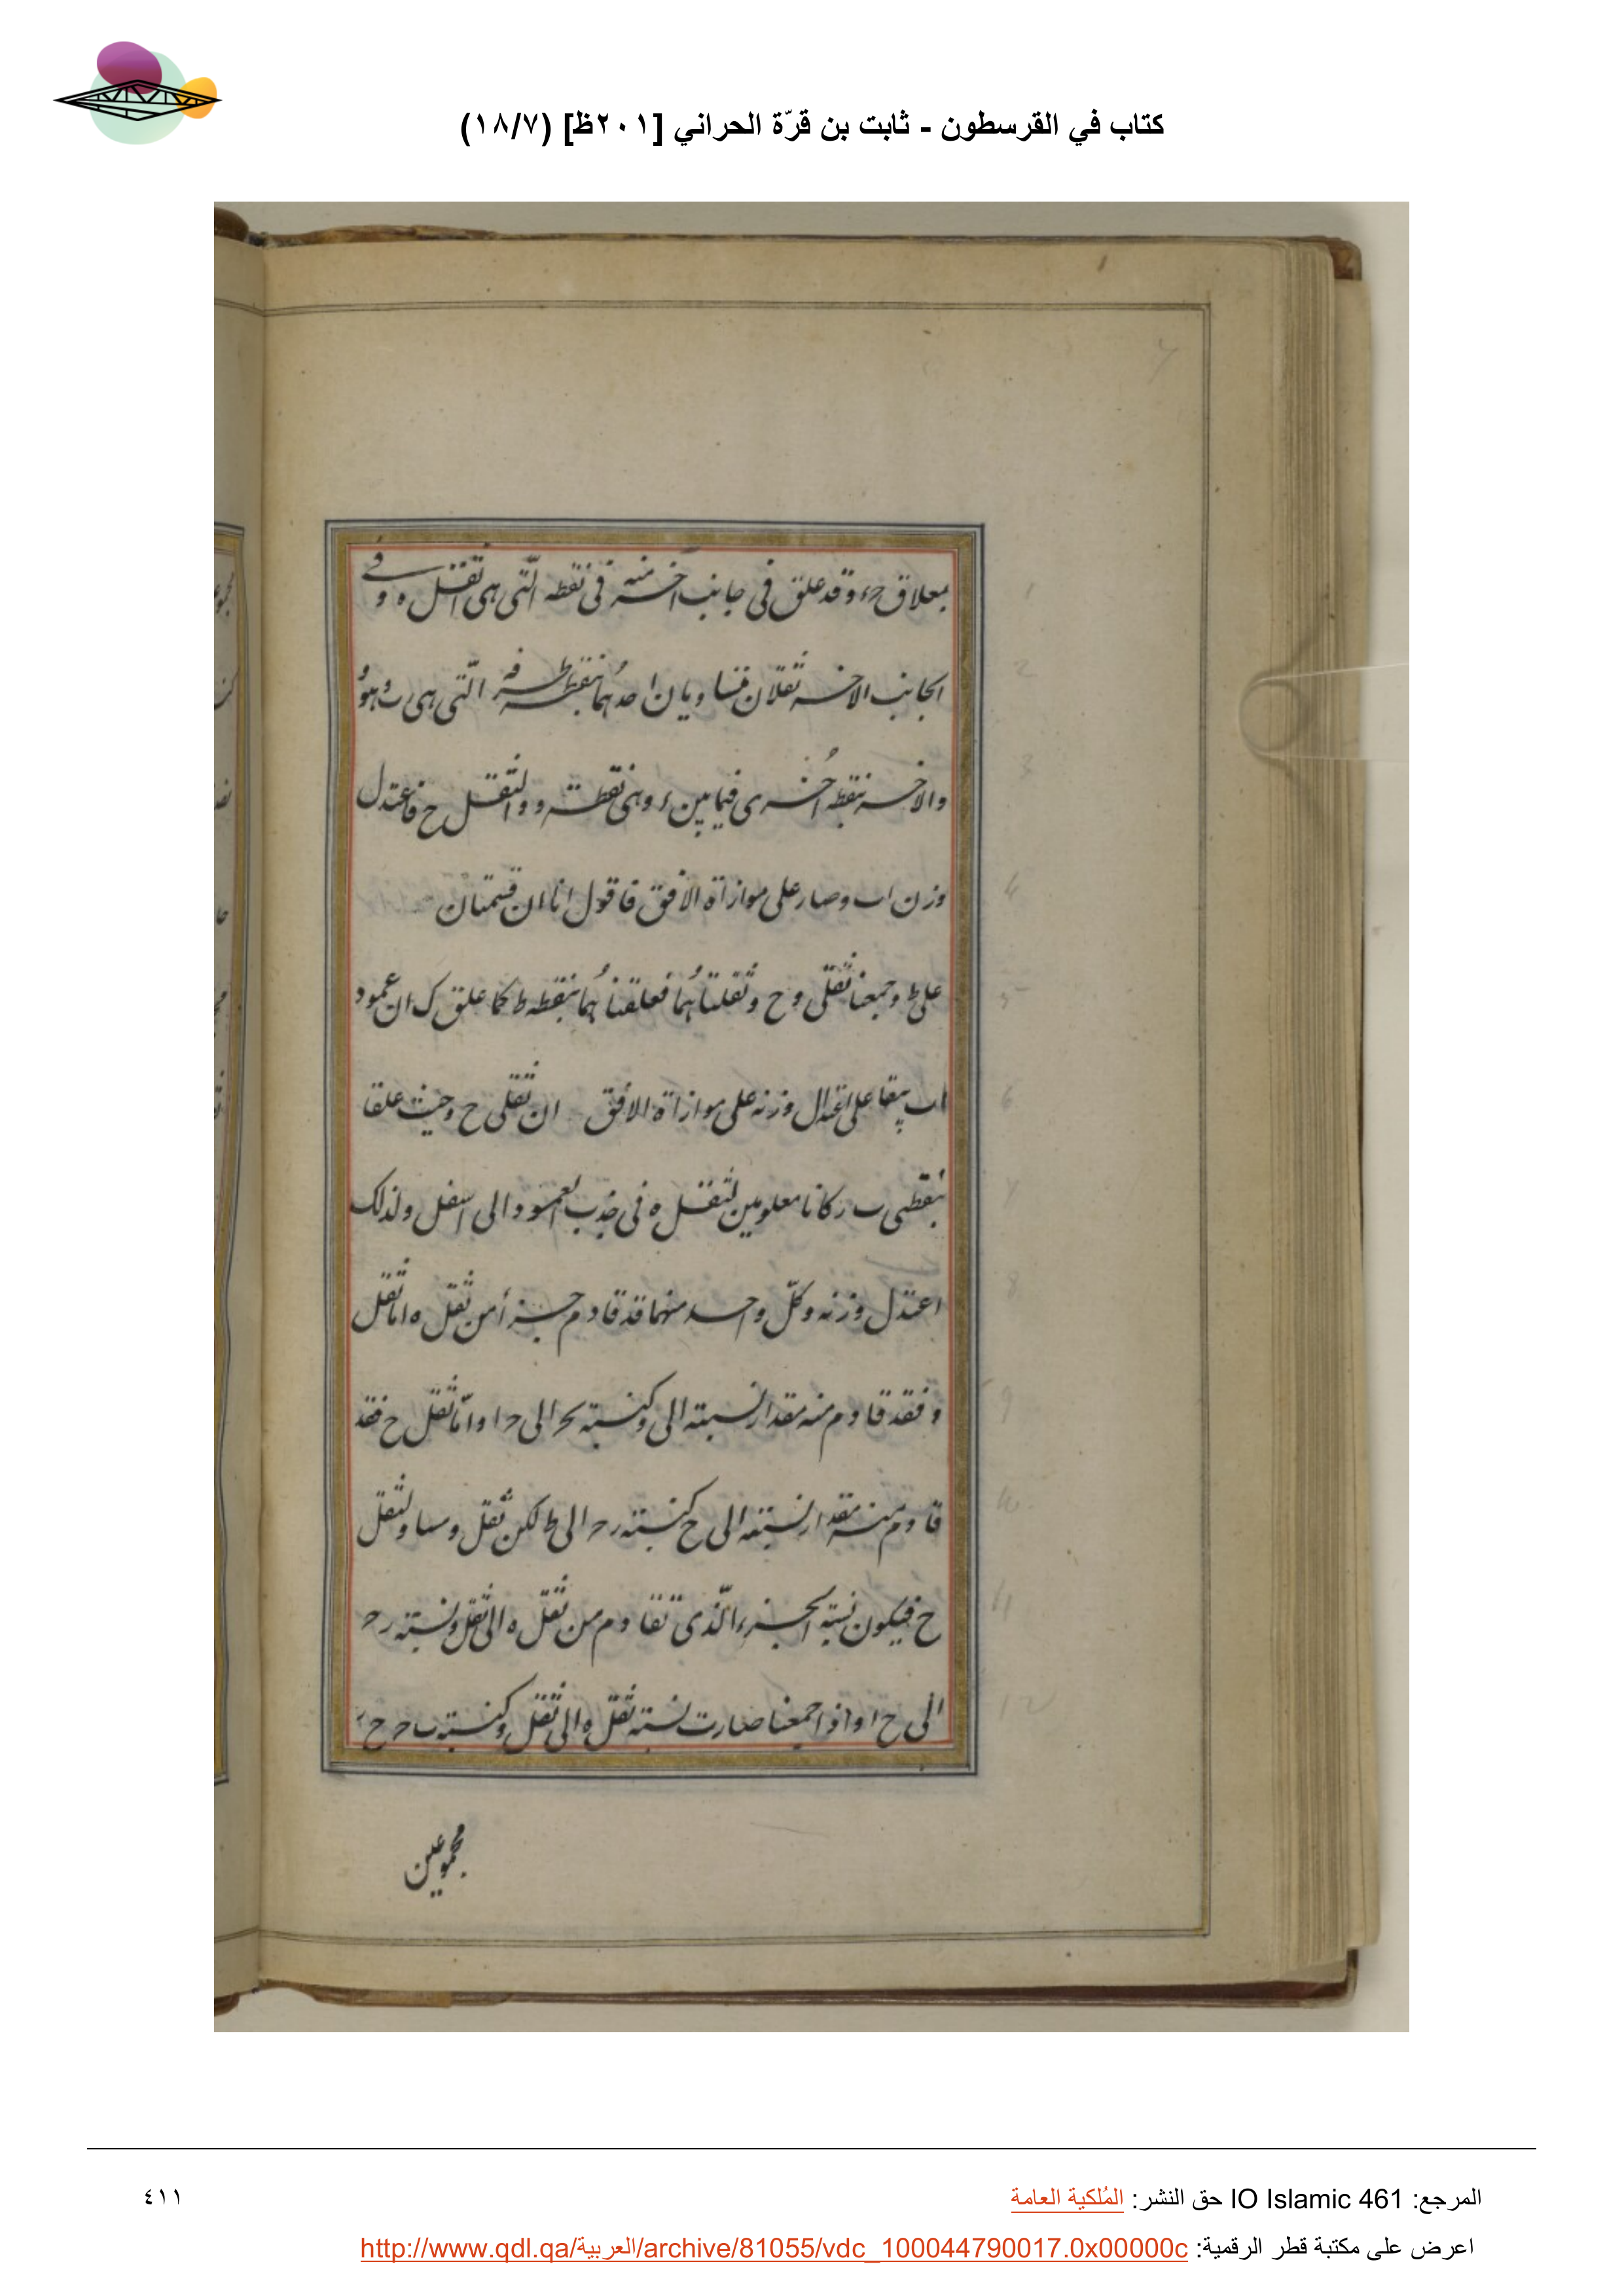 كتاب في القرسطون - ثابت بن قرّة الحراني [٢٠١ظ] (١٨/٧)
بمعلاق حء وقد علق في جانب آخر منه في نقطه الّتي هي ا ثقل ه و في
الجانب الاخر ثقلان متساويان احدهما بنقطة طرفه الّتي هي ب وهو و
والاخر بنقطه اُخرى فيما بين ء وهي نقطة ر والثقل ح فاعتدل
وزن اب وصار على موازاة الافق فاقول انا ان قسمنا
على ط وجمعنا ثقلي و ح وثقلناهُما فعلقناهُما بنقطه ط كما علق ك ان عمود
اب يبقا على اعتدال وزنه على موازاة الافق ان ثقلي ح و حيث علقا
بنقطتي ب ر كانا معلومين لثقل ه في جذب العمود الى اسفل ولذلك
اعتدل وزنه وكلّ واحد منهما قد قاوم جزأ من ثقل ه اما ثقل
و فقد قاوم منه مقدار نسبته الى و كنسبة بح الى حا وامّا ثقل ح فقد
قاوم منه مقدار نسبته الى ح كنسبة رح الى ط لكن ثقل و مساو لثقل
ح فيكون نسبة الجزء الّذي تقاوم من ثقل ه الى ثقل و نسبة رح
الى حا واذا جمعنا صارت نسبة ثقل ه الى ثقل و كنسبة ب ح حر
مجموعين
المرجع: IO Islamic 461 حق النشر: المُلكية العامة
٤١١
اعرض على مكتبة قطر الرقمية: http://www.qdl.qa/العربية/archive/81055/vdc_100044790017.0x00000c